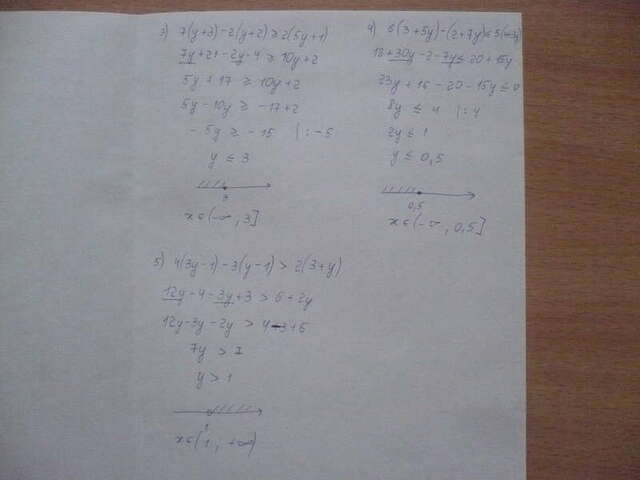 3) 7(y+3)-2(y+2) ≥ 2(5y+1)
7y+21-2y-4 ≥ 10y+2
5y+17 ≥ 10y+2
5y-10y ≥ -17+2
-5y ≥ -15 |:-5
y ≤ 3
3
x∈(-∞, 3]
4) 6(3+5y)-(2+7y)≤5(
18+30y-2-7y≤20+15y
23y+16-20-15y≤0
8y ≤ 4 |:4
2y ≤ 1
y ≤ 0,5
0,5
x∈(-∞, 0,5]
5) 4(3y-1)-3(y-1) > 2(3+y)
12y-4-3y+3 > 6+2y
12y-3y-2y > 4-3+6
7y > 7
y > 1
1
x∈(1; +∞)